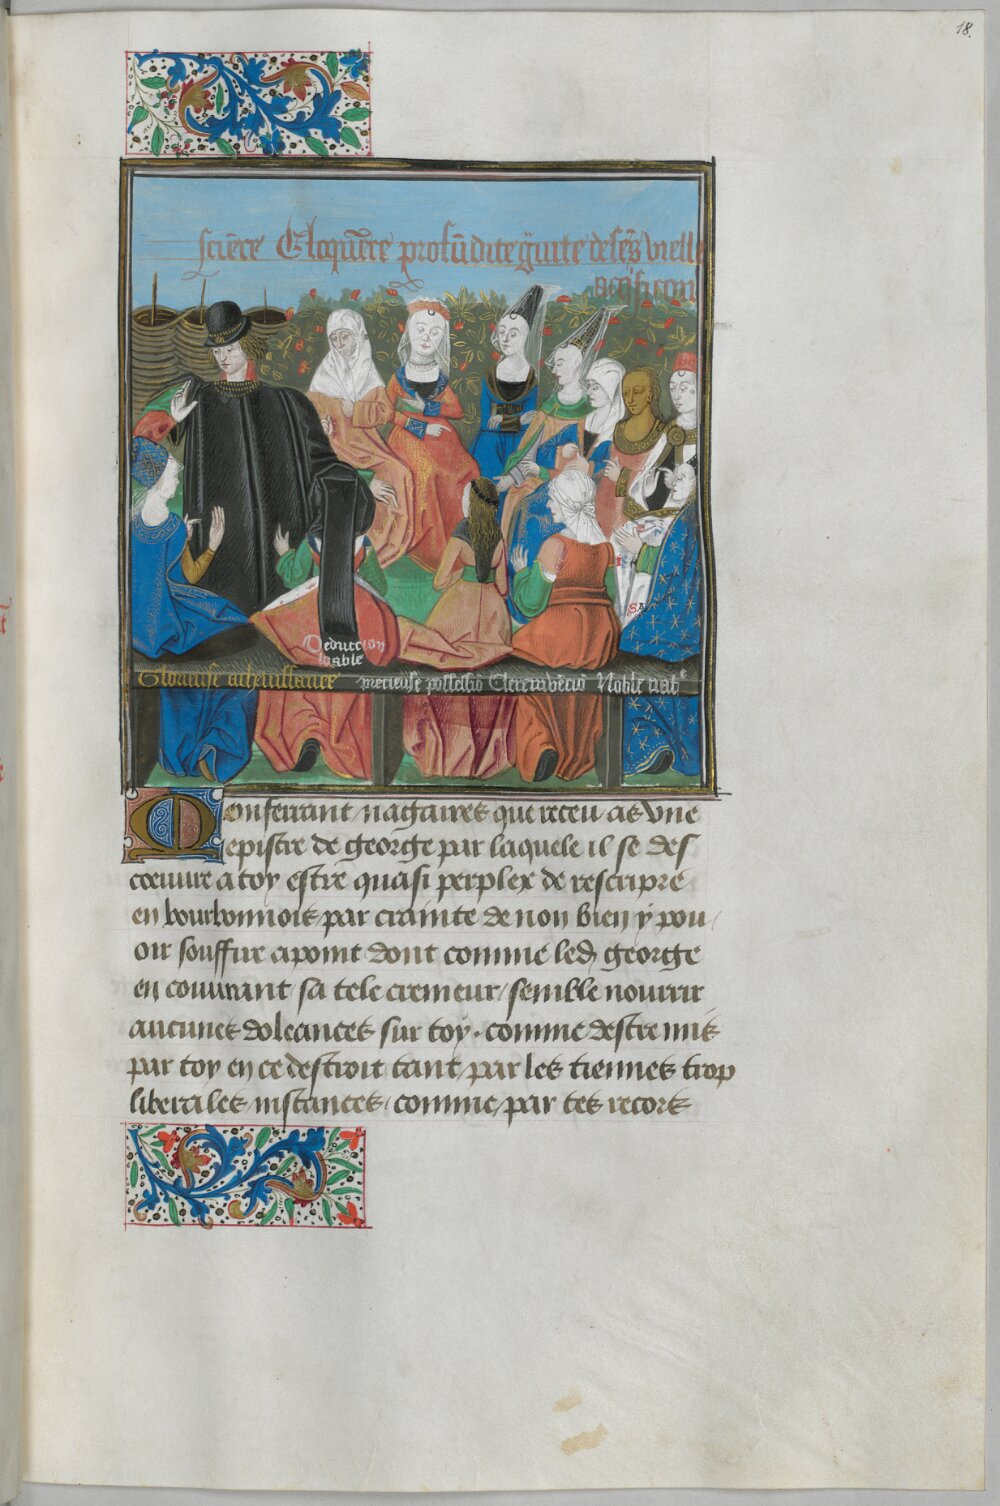 18.
sciẽce Eloquẽce profũdite g̃uite de sẽs vielle
Deduccion
loable
Glorieuse acheuissance precieuse possessiõ Clere inuẽciõ Noble nat
Monferrant nagaires que receu as vne
epistre de george par laquele il se des
coeuure a toy estre quasi perplex de rescripre
en bourbonnois par crainte de non bien y pou
oir souffire a point dont comme led george
en couurant sa tele cremeur semble nourrir
aucunes doleances sur toy . comme destre mis
par toy en ce destroit tant par les tiennes trop
liberales instances comme par tes recors